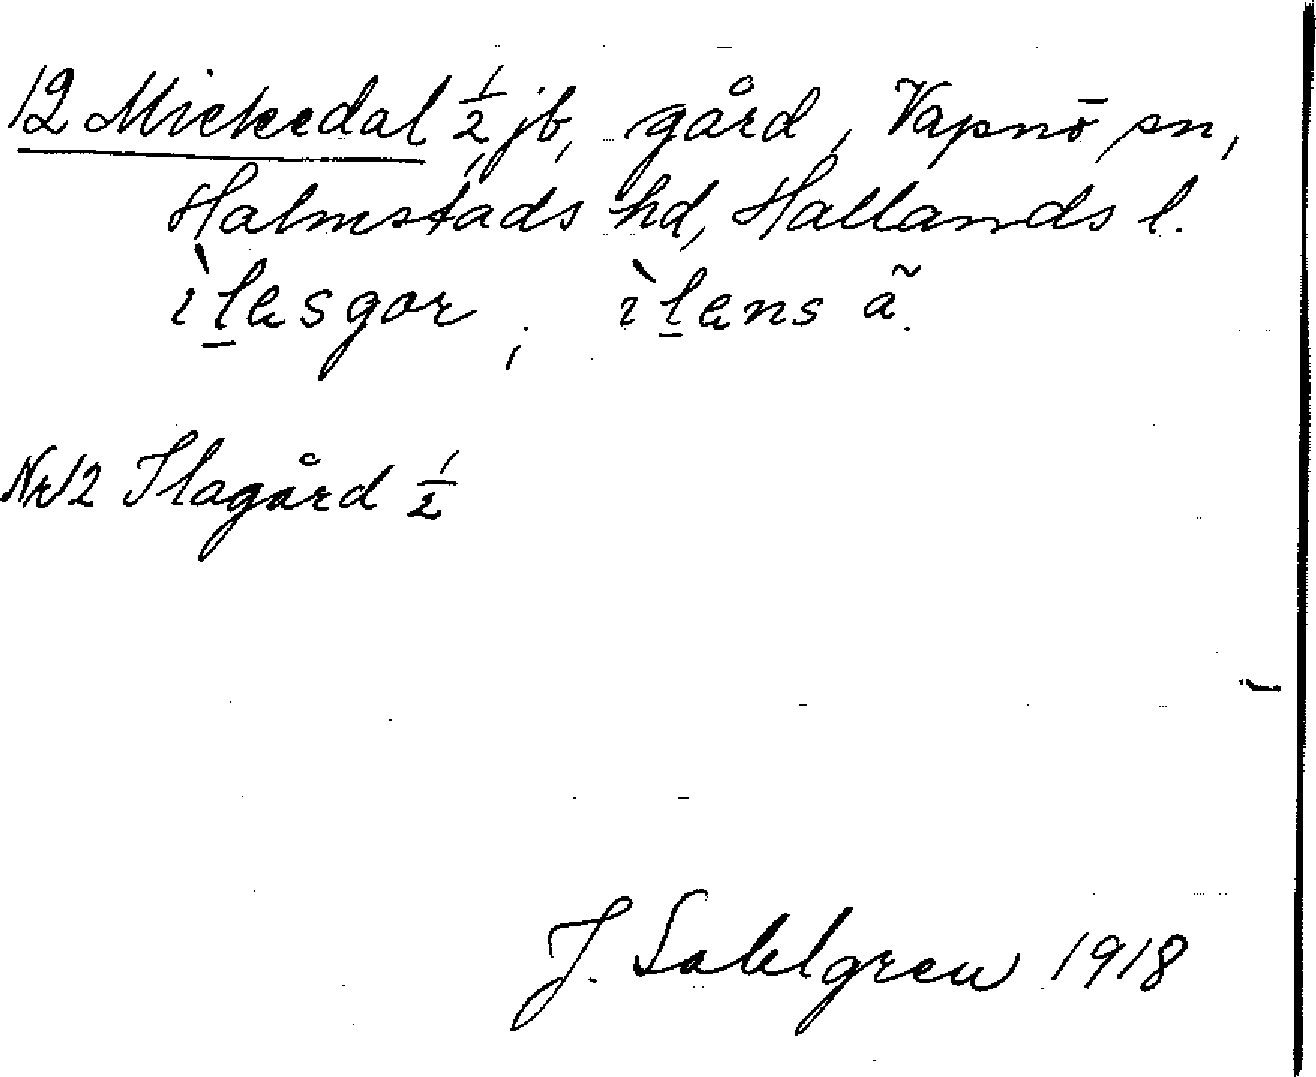 12 Mickedal 1/2 jb, gård, Vapnö sn,
Halmstads hd, Hallands l.
ìlasgor, ìlans ã.
Nr 12 Ilagård 1/2
J. Sahlgren 1918